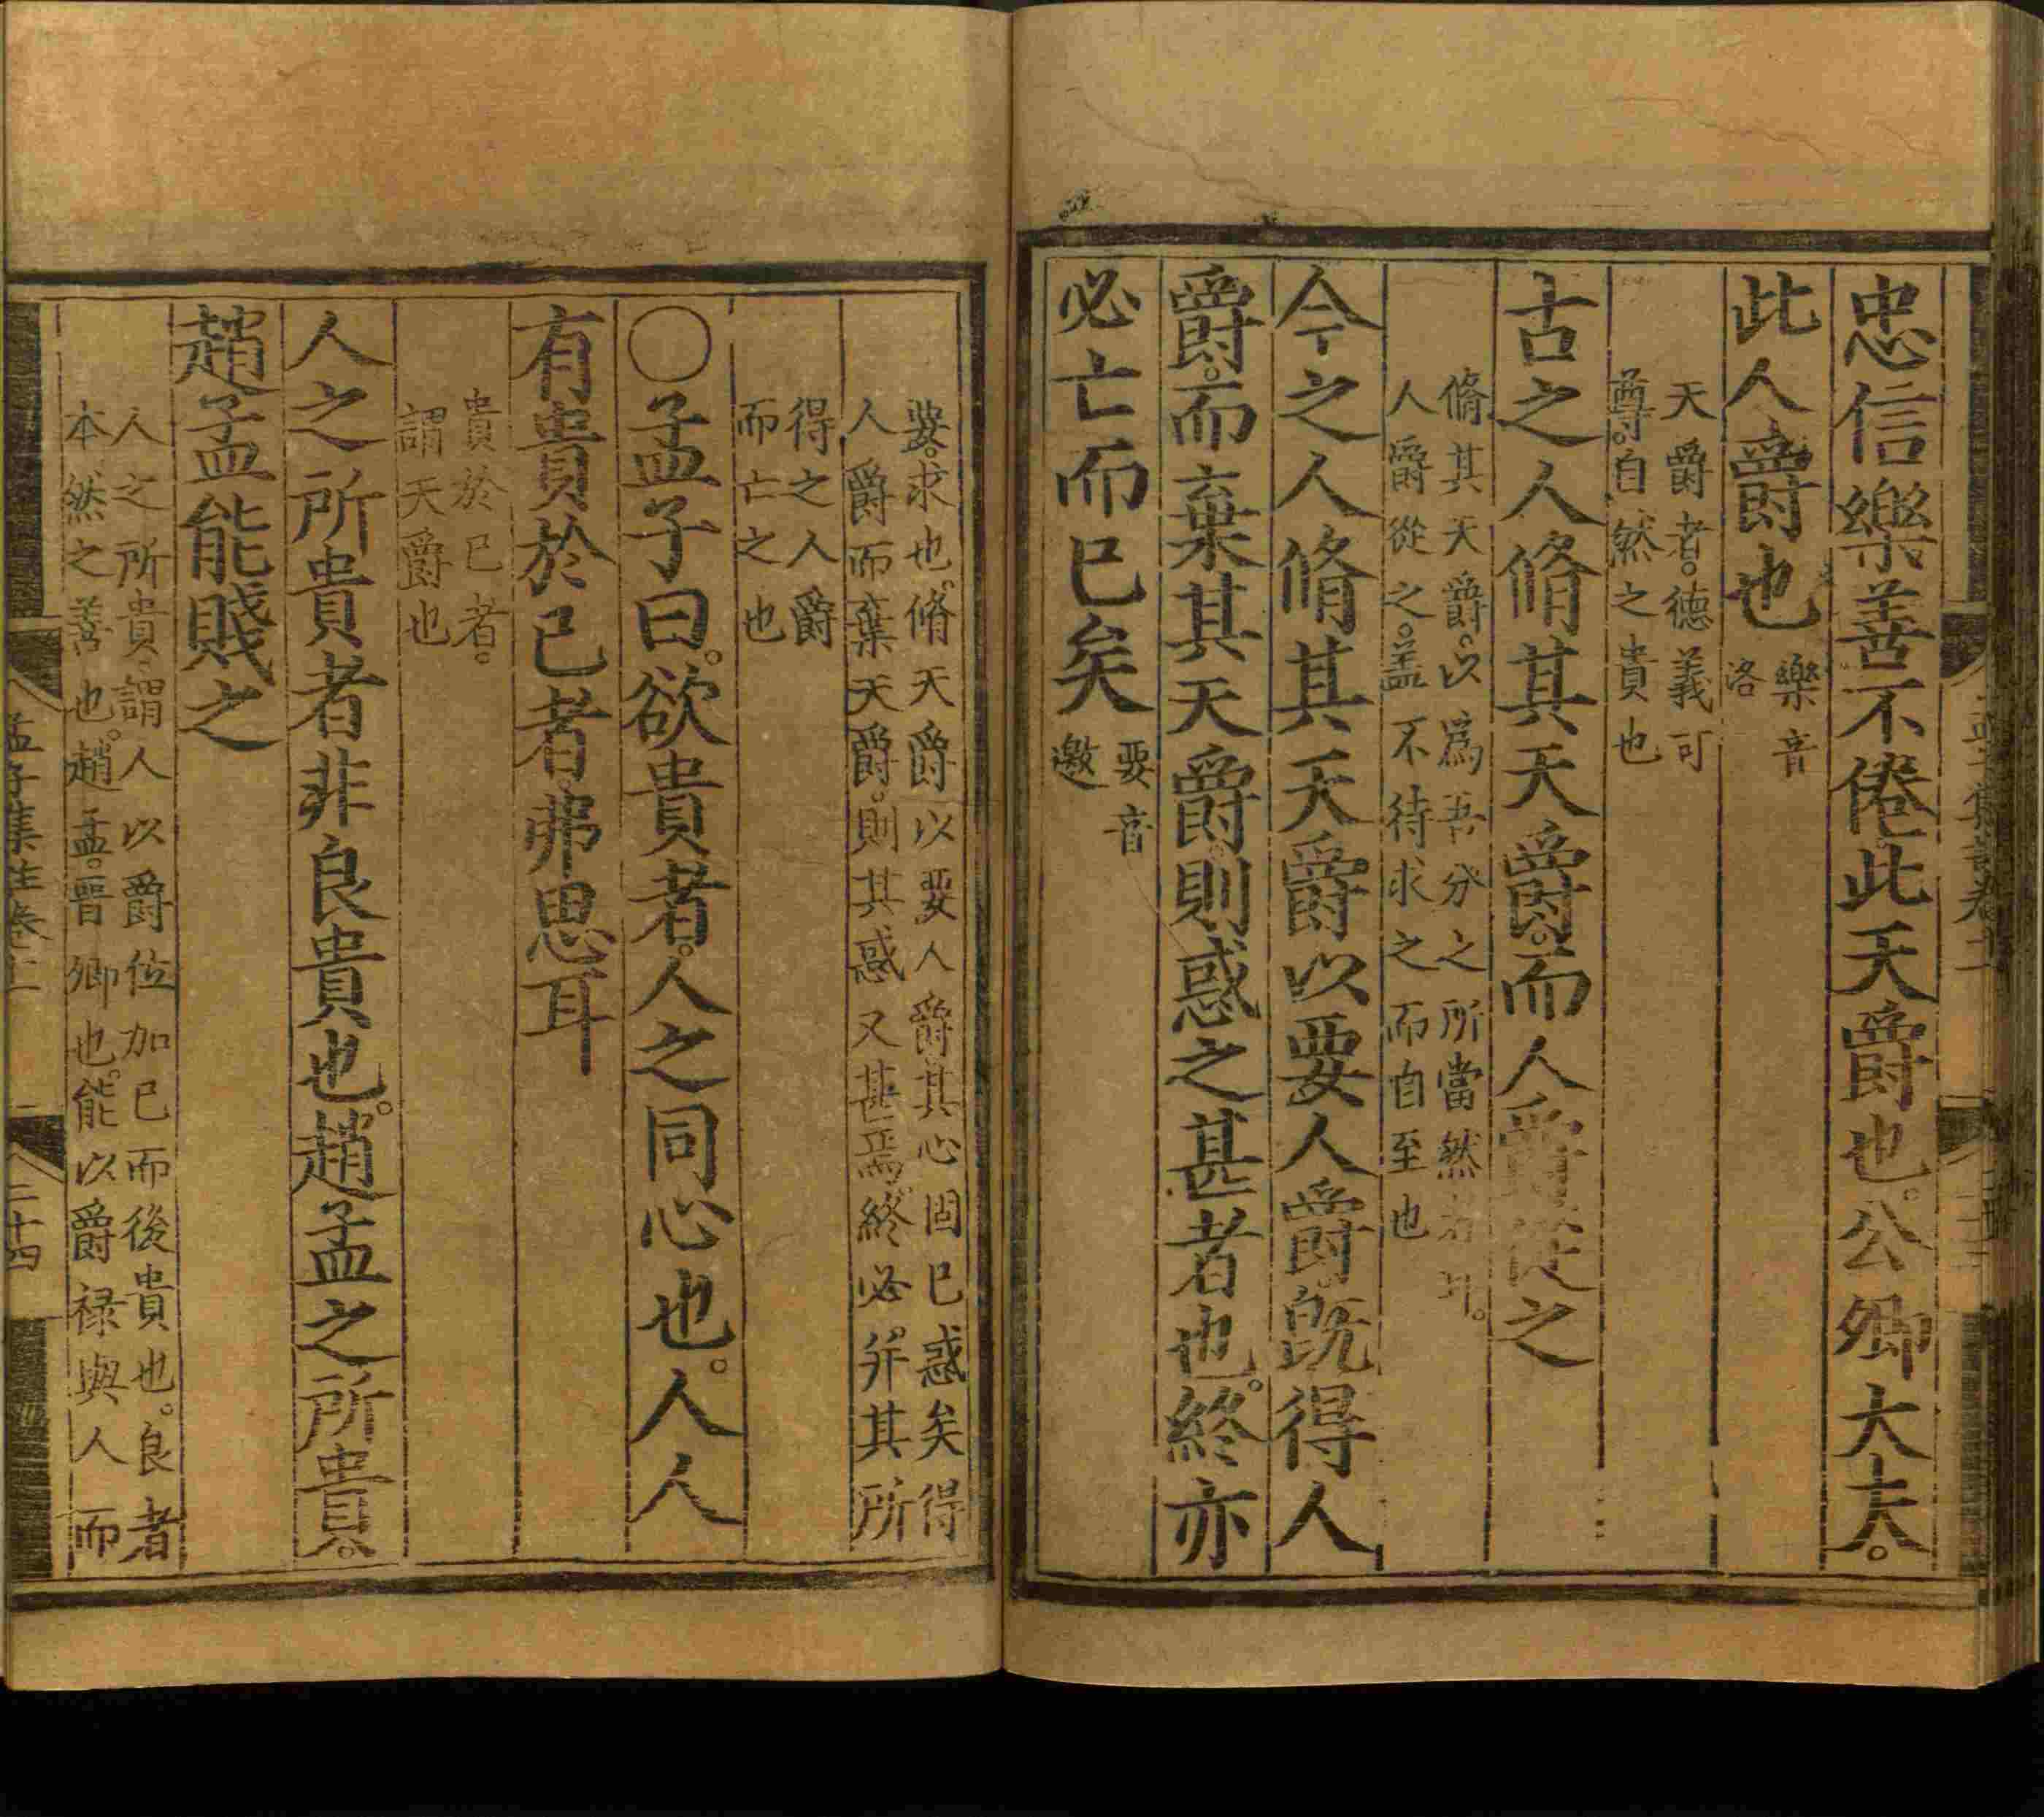 忠信樂善不倦此天爵也。公卿大夫。
此人爵也
樂音
洛
天爵者。德義可
尊。自然之貴也
古之人脩其天爵。而人爵從之
脩其天爵。以爲吾分之所當然者耳。
人爵從之。盖不待求之而自至也
今之人脩其天爵以要人爵。旣得人
爵。而棄其天爵則惑之甚者也。終亦
必亡而已矣
要音
邀
要。求也。脩天爵以要人爵其心固已惑矣得
人爵而棄天爵。則其惑又甚焉。終必并其所
得之人爵
而亡之也
○孟子曰。欲貴者。人之同心也。人人
有貴於已者。弗思耳
貴於已者。
謂天爵也
人之所貴者非良貴也。趙孟之所貴。
趙孟能賤之
人之所貴。謂人以爵位加已而後貴也。良者
本然之善也。趙孟。晉卿也。能以爵禄與人而
孟子集註卷十一
二十四